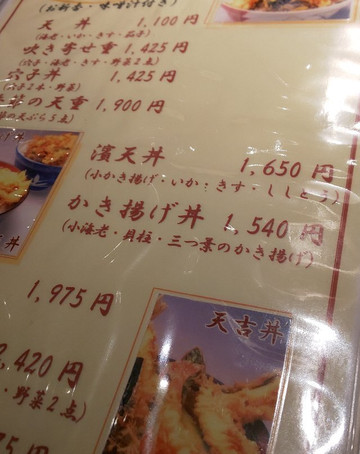 (お新香・味噌汁付き)
天丼 1,100円
(海老・いか・きす・茄子)
吹き寄せ重 1,425円
(穴子・海老・きす・野菜2点)
穴子丼 1,425円
(穴子2本・野菜)
の天重 1,900円
の天ぷら5点)
濱天丼 1,650円
(小かき揚げ・いか・きす・ししとう)
かき揚げ丼 1,540円
(小海老・貝柱・三つ葉のかき揚げ)
丼
1,975円
天吉丼
2,420円
・野菜2点)
75円